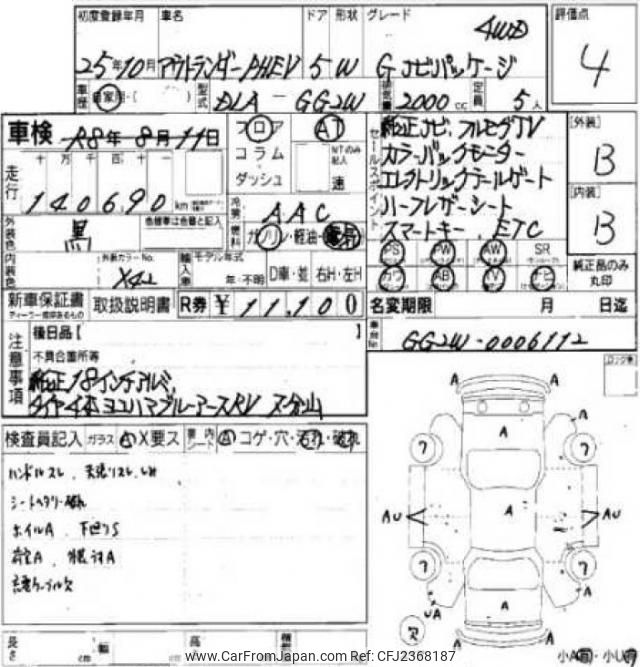 初度登録年月 車名 ドア 形状 グレード 評価点
4WD
25年10月 アウトランダーPHEV 5 W G ナビパッケージ 4
車歴 自家用・( ) 型式 DLA-GG2W 排気量 2000cc 定員 5人
車検 R8年8月11日 フロア AT セールスポイント 純正ナビ、フルセグTV [外装]
コラム MTのみ記入 カラーバックモニター B
走行 十 万 千 百 十 ダッシュ 速 エレクトリックテールゲート
140,690km 冷房 AAC ハーフレザーシート [内装]
外装色 黒 色替車は色番と記入 燃料 ガソリン・軽油・電気 スマートキー、ETC B
PS PW AW SR
内装色 外装カラーNo. X42 輸入車 モデル年式 年・不明 D車・並 右H・左H カワ AB TV ナビ 純正品のみ丸印
新車保証書 取扱説明書 R券 ¥11,100 名変期限 月 日迄
ディーラー捺印あるもの
注意事項 後日品[ ] 車台No. GG2W-0006112
不具合箇所等
純正18インチアルミ、
タイヤ4本ヨコハマブルーアースRV 7分山
検査員記入 ガラス A X要ス 内シート A コゲ・穴・汚れ・破れ
ハンドルスレ、
ホイルA、下廻りS
荷室A、
A
A
A
A
A
AU
AU
A
A
UA
A
A
欠
長さ cm 幅 cm 高
小A・小U
www.CarFromJapan.com Ref: CFJ2368187